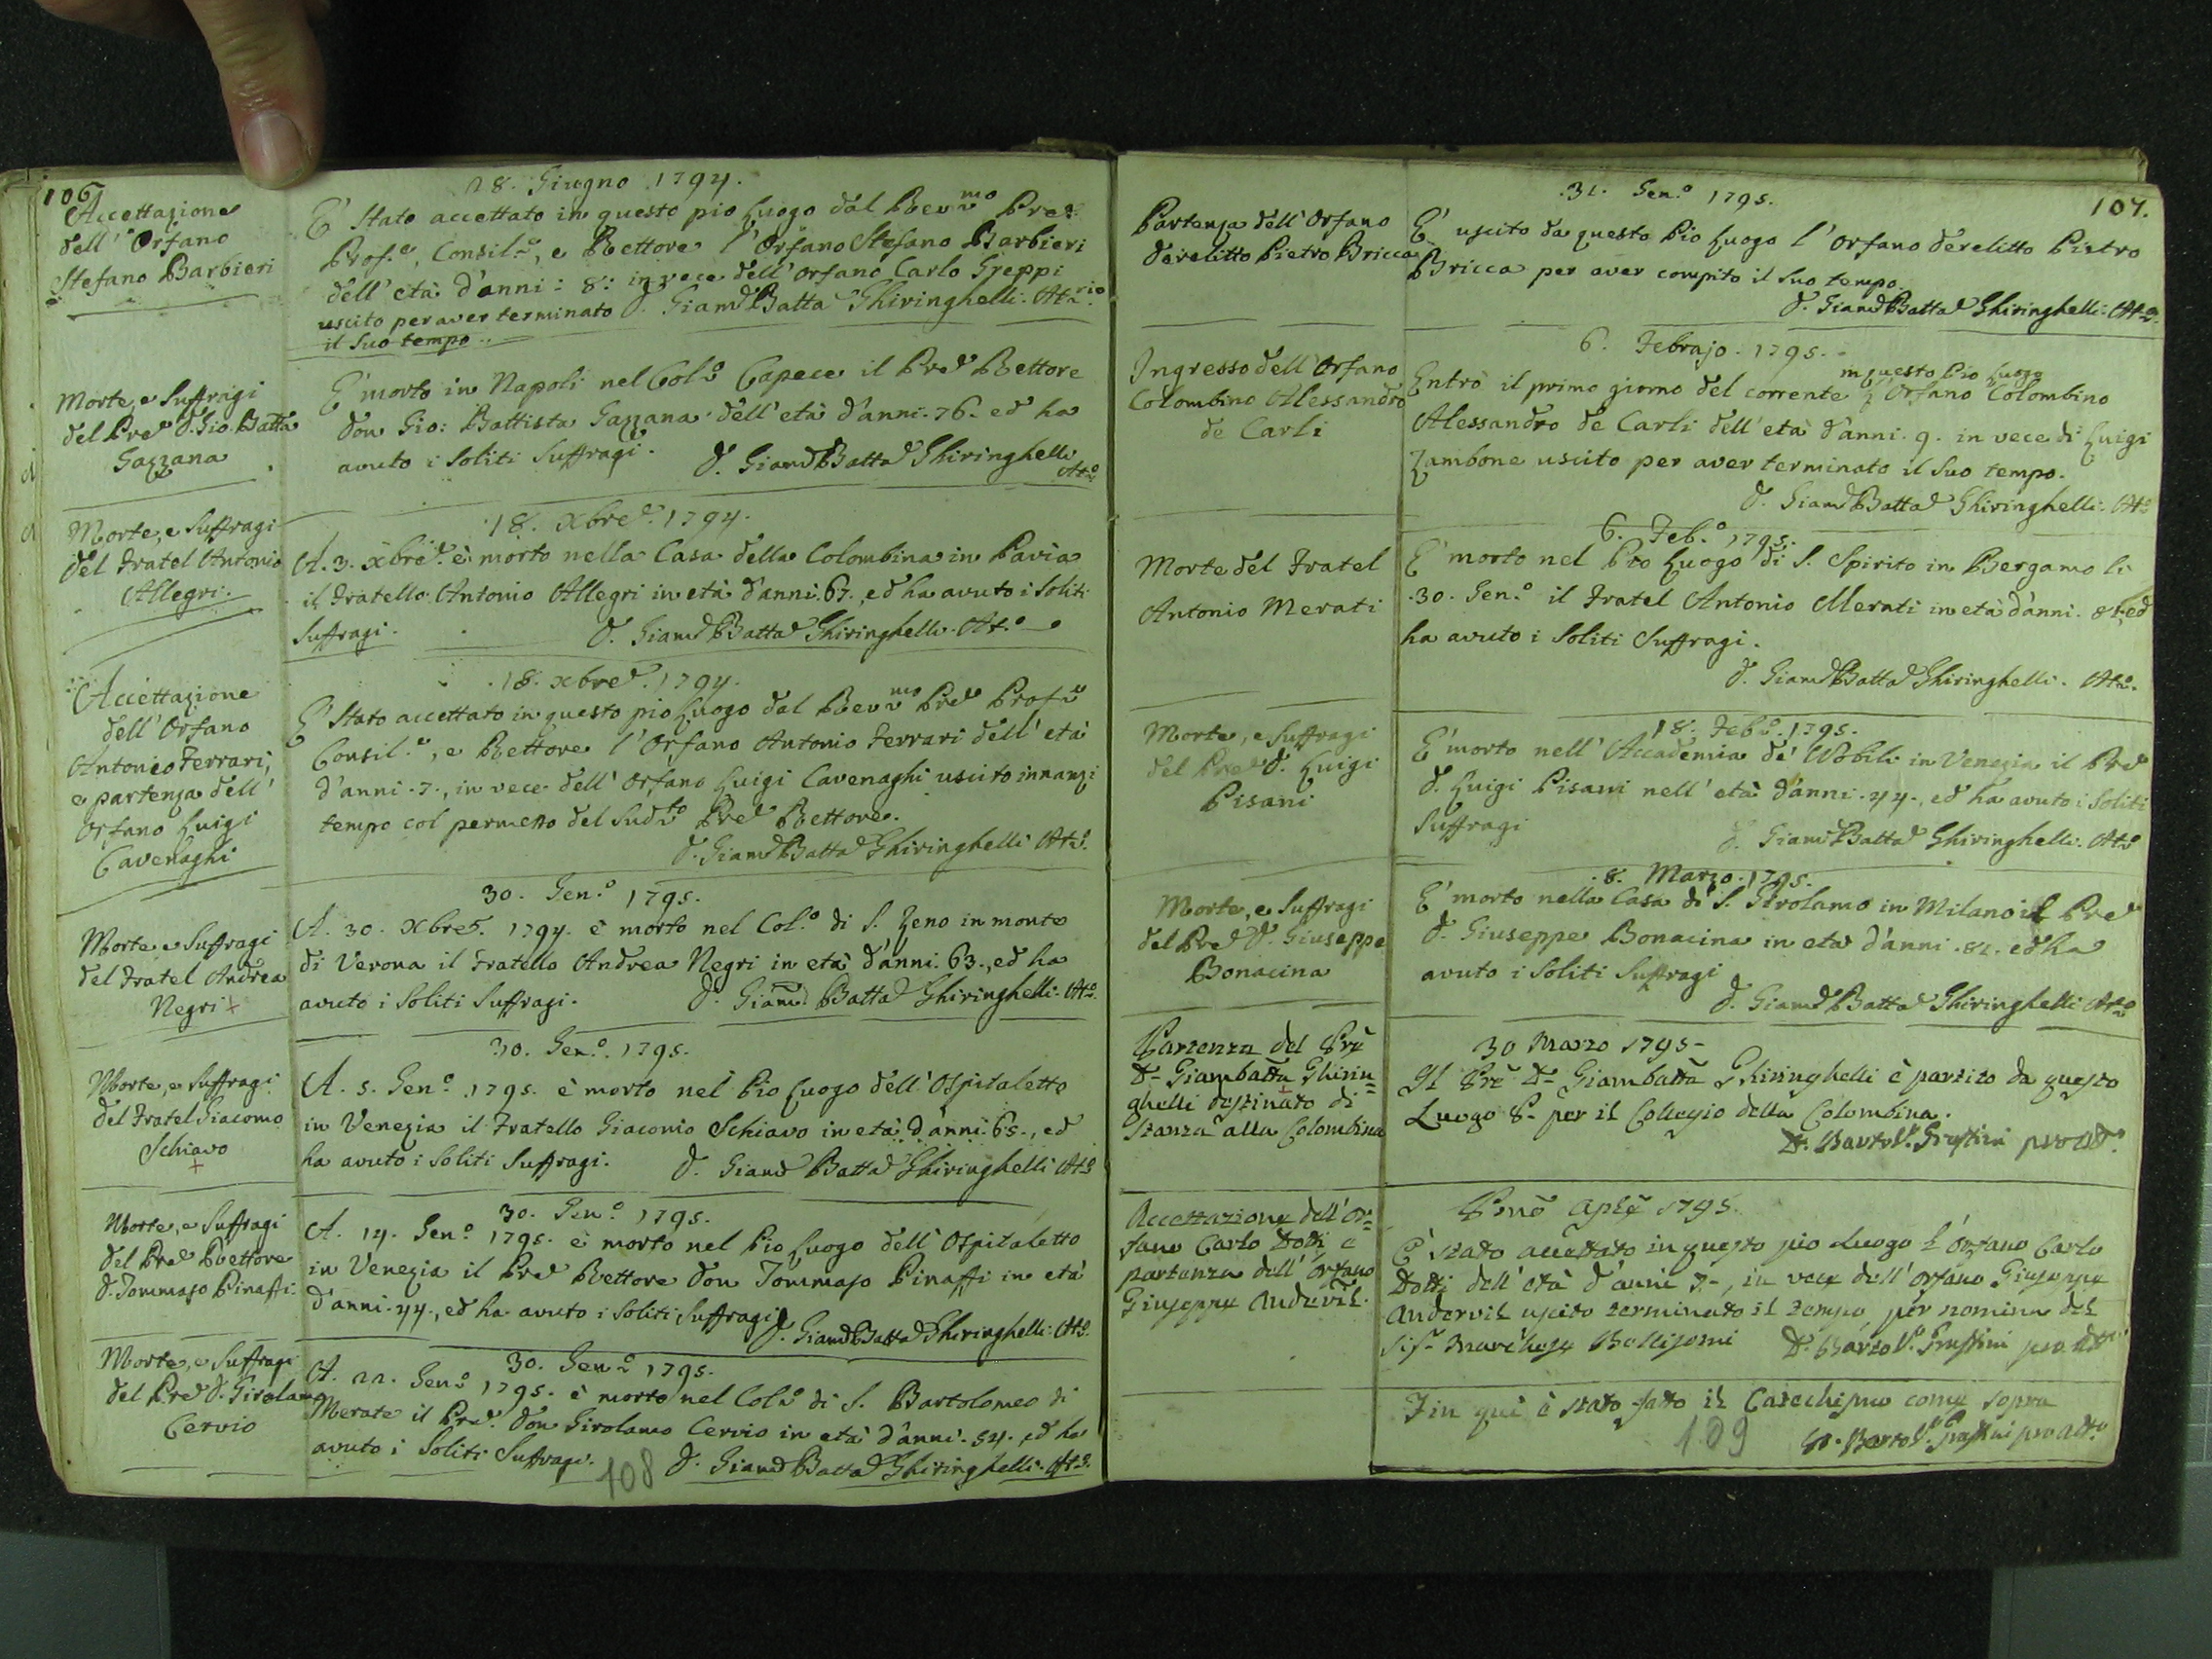 106
28. Giugno 1794.
Accettazione
dell' Orfano
Stefano Barbieri
E' stato accettato in questo pio Luogo dal Revmo Pre
Prof.o, Consil.e, e Rettore l'Orfano Stefano Barbieri
dell' età d'anni: 8: in vece dell' orfano Carlo Greppi
uscito per aver terminato D. Giam Batta Ghiringhelli. Attrio
il suo tempo..
Morte, e Suffragi
del Pre D. Gio Batta
Gazzana
E' morto in Napoli nel Colo Capece il Pre Rettore
don Gio: Battista Gazzana dell' età d'anni. 76. ed ha
avuto i soliti Suffragi. D. Giam Batta Ghiringhelli
Atto
18. xbre. 1794.
Morte, e Suffragi
del Fratel Antonio
Allegri.
A. 3. xbre. è morto nella Casa della Colombina in Pavia
il Fratello Antonio Allegri in età d'anni. 67., ed ha avuto i soliti
Suffragi. D. Giam Batta Ghiringhelli. At.o
18. xbre. 1794.
Accettazione
dell' Orfano
Antonio Ferrari,
e partenza dell'
Orfano Luigi
Cavenaghi
E' Stato accettato in questo pio Luogo dal Revmo Pre Profo
Consil.e, e Rettore l'Orfano Antonio Ferrari dell' età
d'anni. 7., in vece dell' Orfano Luigi Cavenaghi uscito innanzi
tempo col permesso del Sudto Pre Rettore.
D. Giam Batta Ghiringhelli Atto.
30. Gen.o 1795.
Morte, e Suffragi
del Fratel Andrea
Negri +
A. 30. Xbre. 1794. è morto nel Col.o di S. Zeno in monte
di Verona il Fratello Andrea Negri in età d'anni. 63., ed ha
avuto i soliti Suffragi. D. Giam Batta Ghiringhelli. Atto.
30. Gen.o 1795.
Morte, e Suffragi
del Fratel Giacomo
Schiavo
+
A. 5. Gen.o 1795. è morto nel Pio Luogo dell' Ospitaletto
in Venezia il Fratello Giacomo Schiavo in età d'anni. 65., ed
ha avuto i soliti Suffragi. D. Giam Batta Ghiringhelli Atto
30. Gen.o 1795.
Morte, e Suffragi
del Pre Rettore
D. Tommaso Pinaffi
A. 14. Gen.o 1795. è morto nel Pio Luogo dell' Ospitaletto
in Venezia il Pre Rettore don Tommaso Pinaffi in età
d'anni. 44., ed ha avuto i soliti Suffragi
D. Giam Batta Ghiringhelli. Atto.
30. Gen.o 1795.
Morte, e Suffragi
del Pre D. Girolamo
Cervio
A. 22. Gen.o 1795. è morto nel Colo di S. Bartolomeo di
Merate il Pre. don Girolamo Cervio in età d'anni. 54. ed ha
avuto i soliti Suffragi. D. Giam Batta Ghiringhelli. Atto.
108
107.
31. Gen.o 1795.
Partenza dell' Orfano
derelitto Pietro Bricca
E' uscito da questo Pio Luogo l'Orfano derelitto Pietro
Bricca per aver compito il suo tempo.
D. Giam Batta Ghiringhelli. Atto.
6. Febrajo. 1795.
Ingresso dell' Orfano
Colombino Alessandro
de Carli
in questo Pio Luogo
Entrò il primo giorno del corrente l'Orfano Colombino
Alessandro de Carli dell' età d'anni. 9. in vece di Luigi
Zambone uscito per aver terminato il suo tempo.
D. Giam Batta Ghiringhelli. Atto
6. Feb.o 1795.
Morte del Fratel
Antonio Merati
E' morto nel Pio Luogo di S. Spirito in Bergamo li
30. Gen.o il Fratel Antonio Merati in età d'anni. 81. ed
ha avuto i soliti Suffragi.
D. Giam Batta Ghiringhelli. Atto.
18. Febo. 1795.
Morte, e Suffragi
del Pre D. Luigi
Pisani
E' morto nell' Accademia de' Nobili in Venezia il Pre
D. Luigi Pisani nell' età d'anni. 44., ed ha avuto i soliti
Suffragi D. Giam Batta Ghiringhelli. Atto
8. Marzo. 1795.
Morte, e Suffragi
del Pre D. Giuseppe
Bonacina
E' morto nella Casa di S. Girolamo in Milano il Pre
D. Giuseppe Bonacina in età d'anni. 82. ed ha
avuto i soliti Suffragi
D. Giam Batta Ghiringhelli Atto
30 Marzo 1795-
Partenza del Pre
D. Giambatta Ghirin=
ghelli destinato di
stanza alla Colombina
Il Pre D. Giambatta Ghiringhelli è partito da questo
Luogo P. per il Collegio della Colombina.
D. Barto V. Graffini pro Att.o
Primo Aple 1795.
Accettazione dell' Or=
fano Carlo Dotti, e
partenza dell' Orfano
Giuseppe Andervil.
E' stato accettato in questo pio Luogo l'Orfano Carlo
Dotti dell' età d'anni 7-, in vece dell' Orfano Giuseppe
Andervil uscito terminato il tempo, per nomina del
Sig. Marchese Bellisomi D. Barto V. Graffini pro Att.o
Fin qui è stato fatto il Catechismo come sopra
D. Barto V. Graffini pro Att.o
109